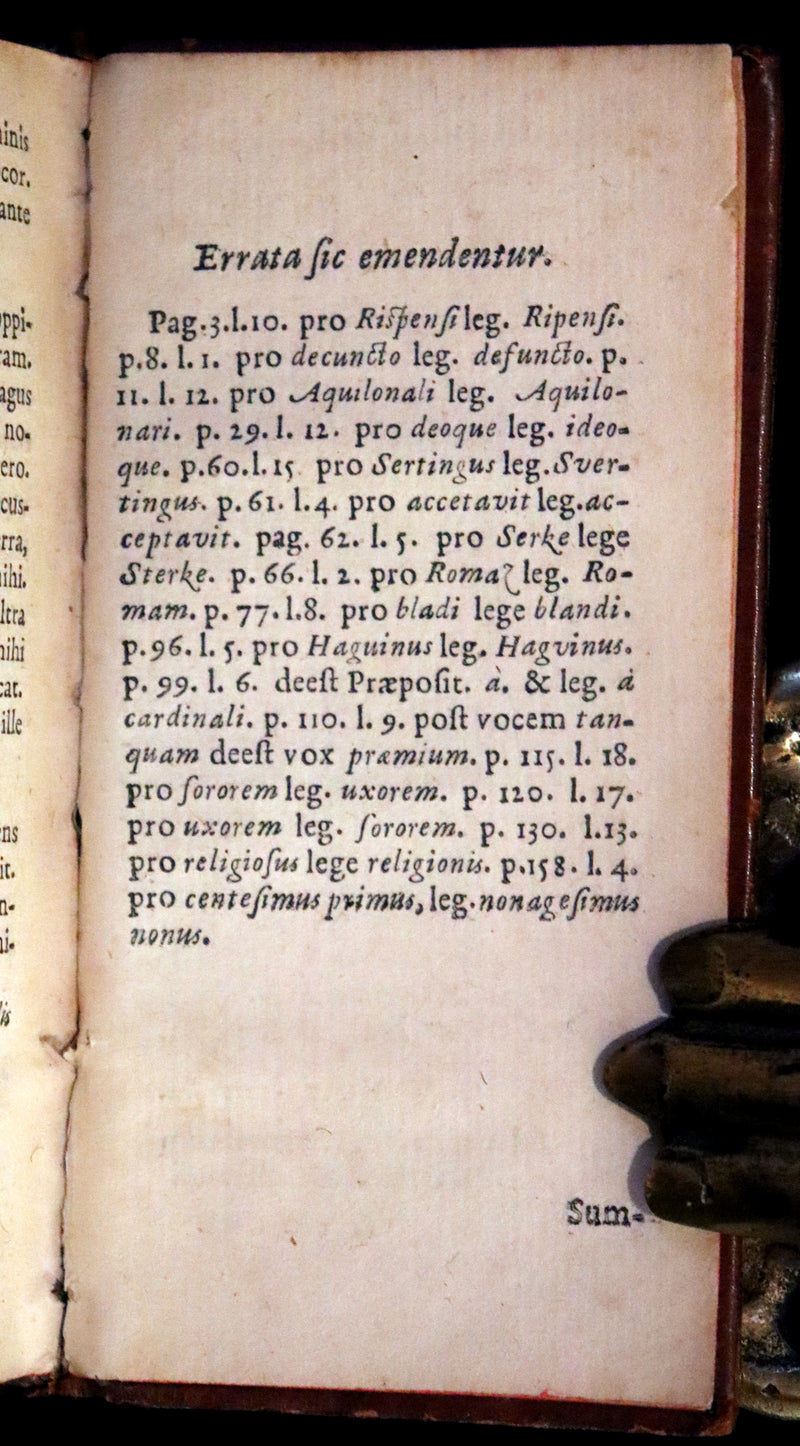 inis
cor.
ante
ppi-
am.
agus
no.
ero.
cus-
rra,
ihi.
ltra
nihi
cat.
ille
ens
it.
n-
ni-
lis
Errata ſic emendentur.
Pag.3.l.10. pro Riſpenſi leg. Ripenſi.
p.8. l. 1. pro decunctio leg. defunctio. p.
11. l. 12. pro Aquilonali leg. Aquilo-
nari. p. 29. l. 12. pro deoque leg. ideo-
que. p.60.l.15 pro Sertingus leg. Sver-
tingus. p. 61. l.4. pro accetavit leg.ac-
ceptavit. pag. 62. l. 5. pro Serke lege
Sterke. p. 66. l. 2. pro Roma leg. Ro-
mam. p. 77.l.8. pro bladi lege blandi.
p.96. l. 5. pro Haguinus leg. Hagvinus.
p. 99. l. 6. deeſt Præpoſit. à. & leg. à
cardinali. p. 110. l. 9. poſt vocem tan-
quam deeſt vox præmium. p. 115. l. 18.
pro ſororem leg. uxorem. p. 120. l. 17.
pro uxorem leg. ſororem. p. 130. l.13.
pro religioſus lege religionis. p.158. l. 4.
pro centeſimus primus, leg. nonageſimus
nonus.
Sum-